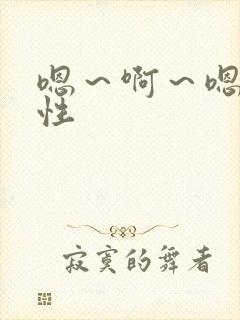 嗯～啊～嗯
性
寂寞的舞者